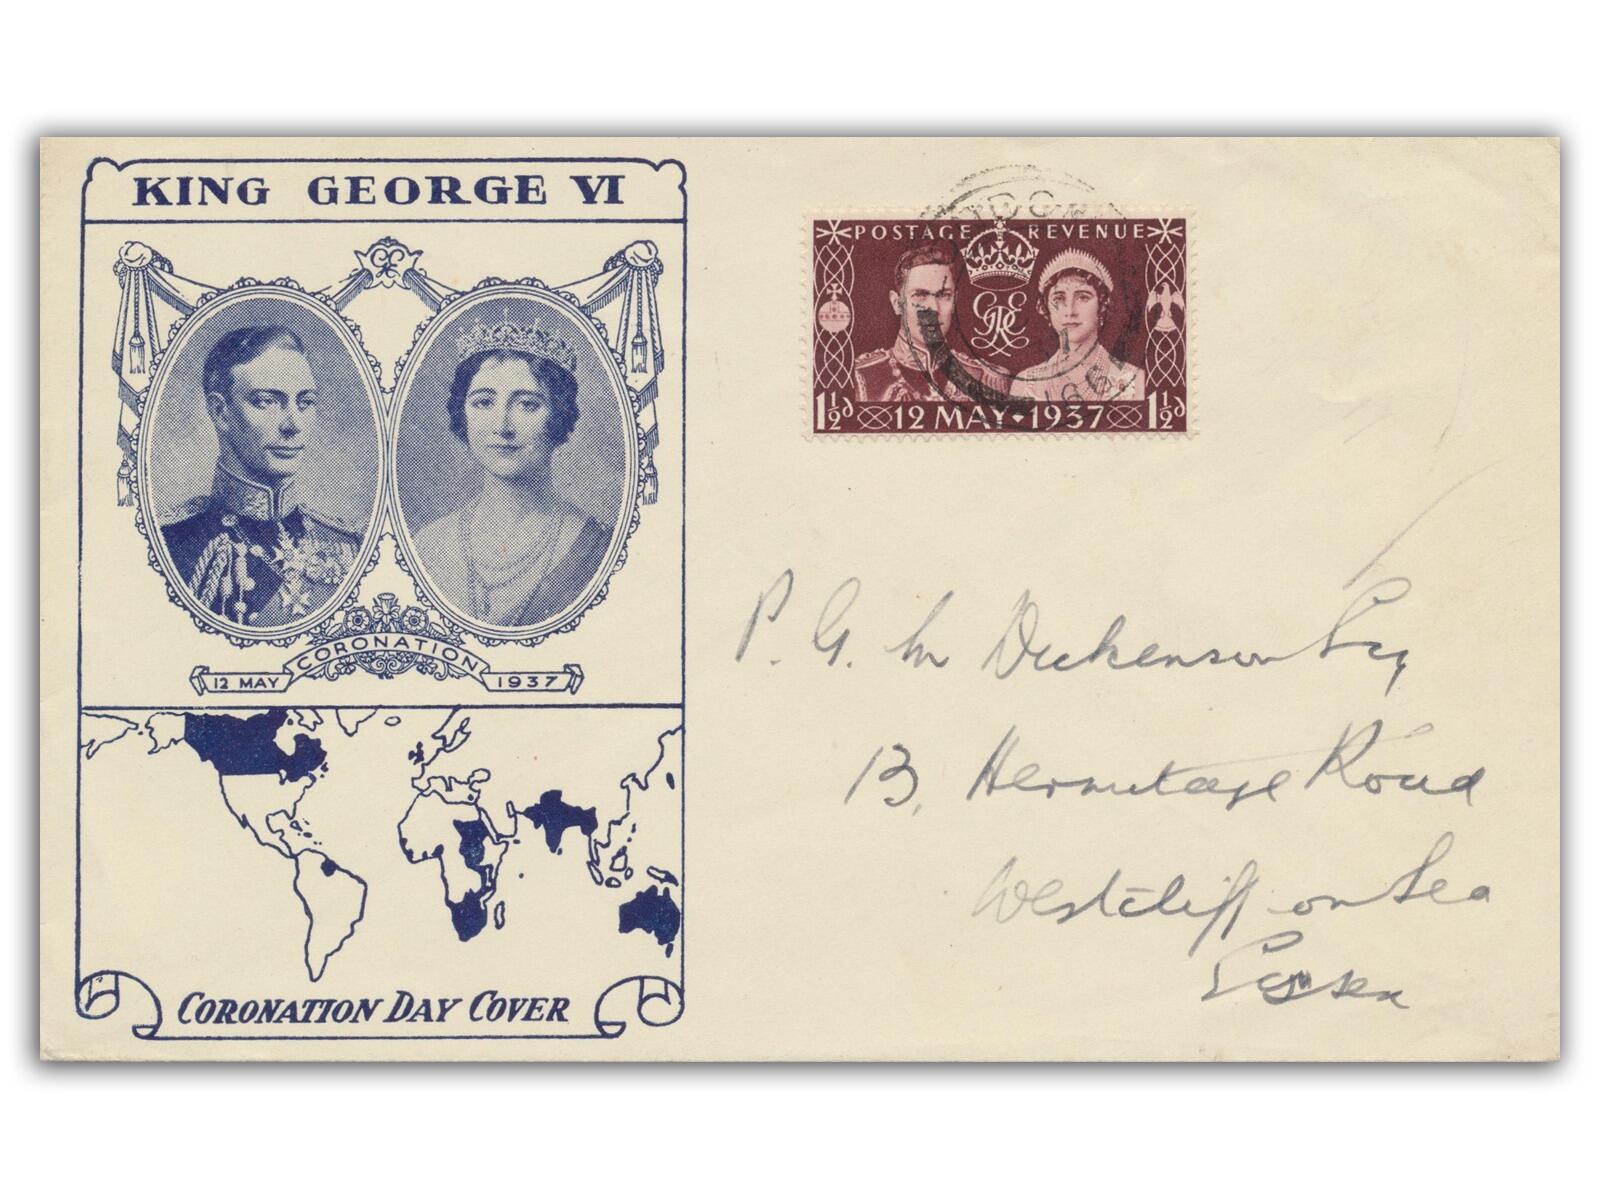 KING GEORGE VI
CORONATION
12 MAY 1937
CORONATION DAY COVER
POSTAGE REVENUE
GRE
1½d 12 MAY 1937 1½d
P. G. M Dickenson Esq
13, Hermitage Road
Westcliff on Sea
Essex